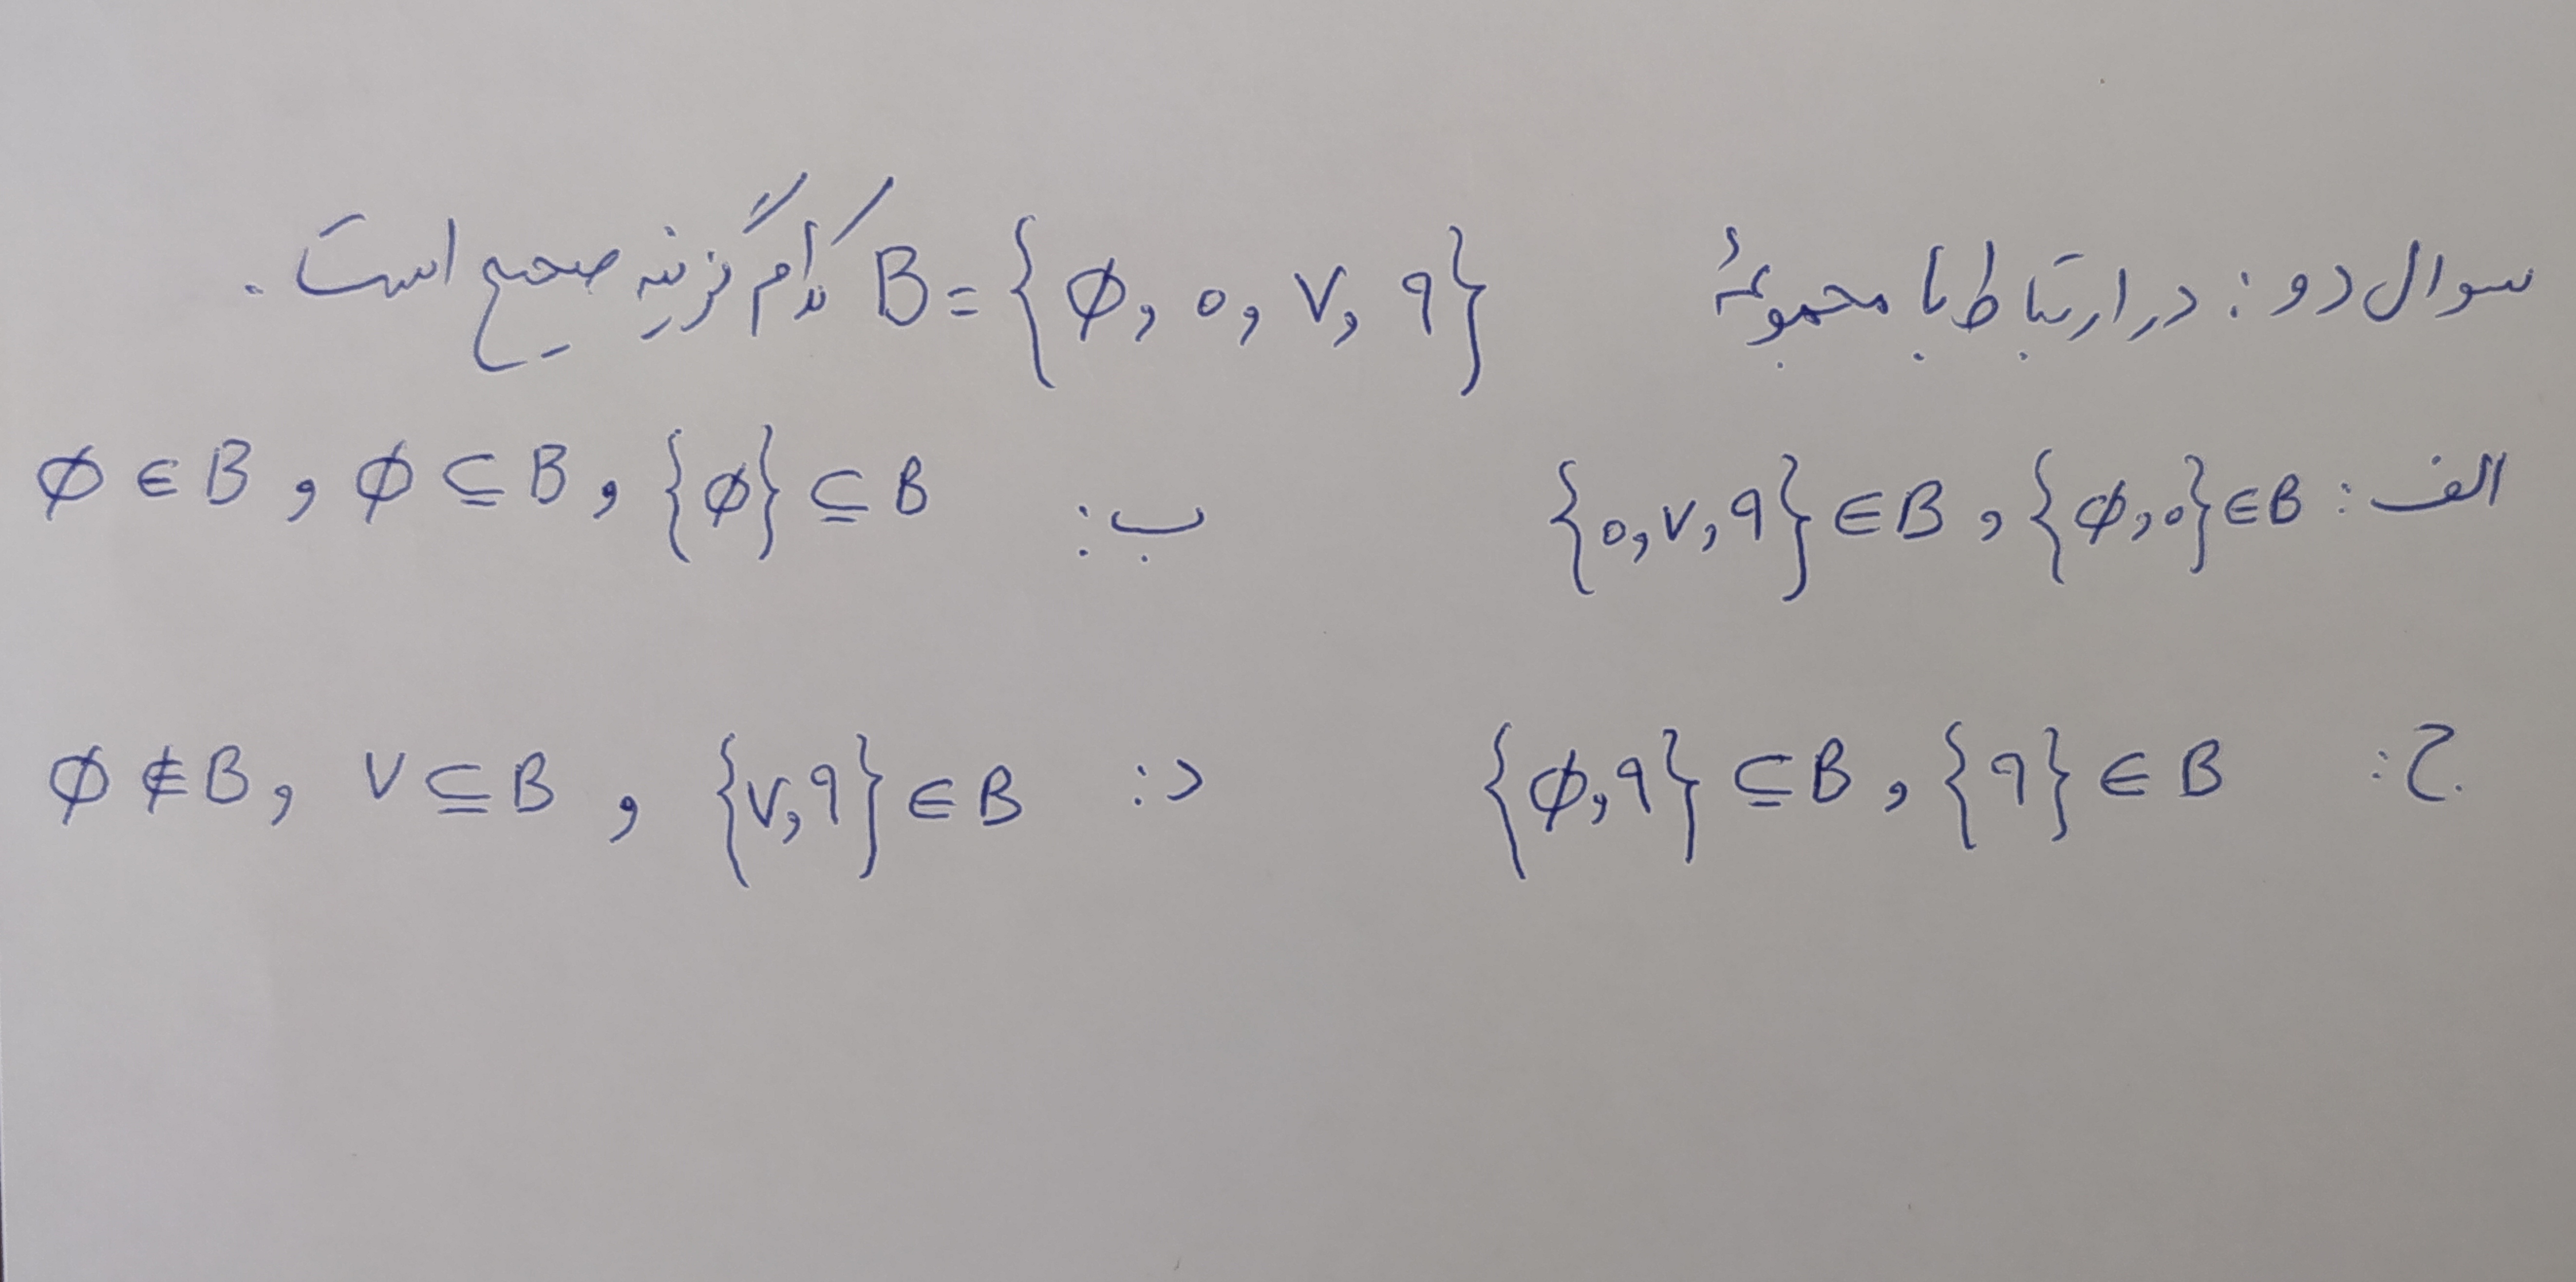 سوال دو: در ارتباط با مجموعهٔ B = {∅, ۰, ۷, ۹} کدام گزینه صحیح است.
الف: {۰, ۷, ۹} ∈ B , {∅, ۰} ∈ B ب: ∅ ∈ B , ∅ ⊆ B , {∅} ⊆ B
ج: {∅, ۹} ⊆ B , {۹} ∈ B د: ∅ ∉ B , ۷ ⊆ B , {۷, ۹} ∈ B